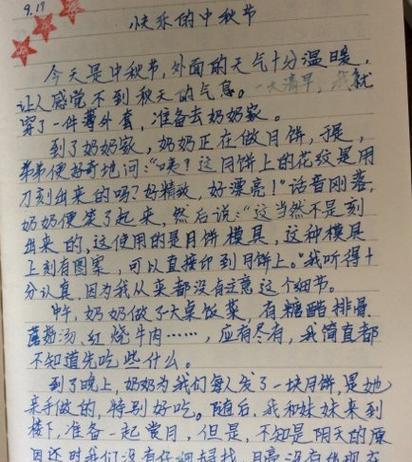 9.17
快乐的中秋节
今天是中秋节,外面的天气十分温暖,
让人感觉不到秋天的气息。一大清早,我就
穿了一件薄外套,准备去奶奶家。
到了奶奶家,奶奶正在做月饼,于是,
弟弟便好奇地问:“咦?这月饼上的花纹是用
刀刻出来的吗?好精致,好漂亮!”话音刚落,
奶奶便笑了起来,然后说:“这当然不是刻
出来的,这使用的是月饼模具,这种模具
上刻有图案,可以直接印到月饼上。”我听得十
分认真,因为我从来都没有注意这个细节。
中午,奶奶做了一大桌饭菜,有糖醋排骨
蘑菇汤、红烧牛肉……,应有尽有,我简直都
不知道先吃些什么。
到了晚上,奶奶为我们每人发了一块月饼,是她
亲手做的,特别好吃。随后,我和妹妹来到
楼下,准备一起赏月,但是,不知是阴天的原
因还是我们没有仔细寻找,月亮没有出现在